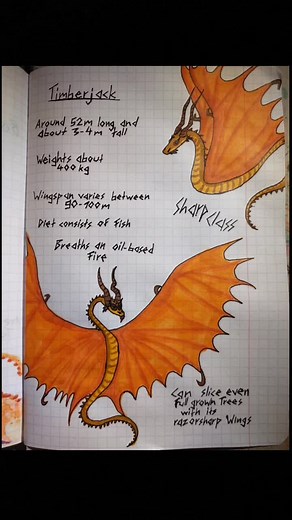 Timberjack
Around 52m long and
about 3-4m tall
Weights about
400kg
Wingspan varies between
90-100m
Sharp Class
Diet consists of Fish
Breaths an oil-based
Fire
Can slice even
Full grown Trees
with its
razorsharp Wings